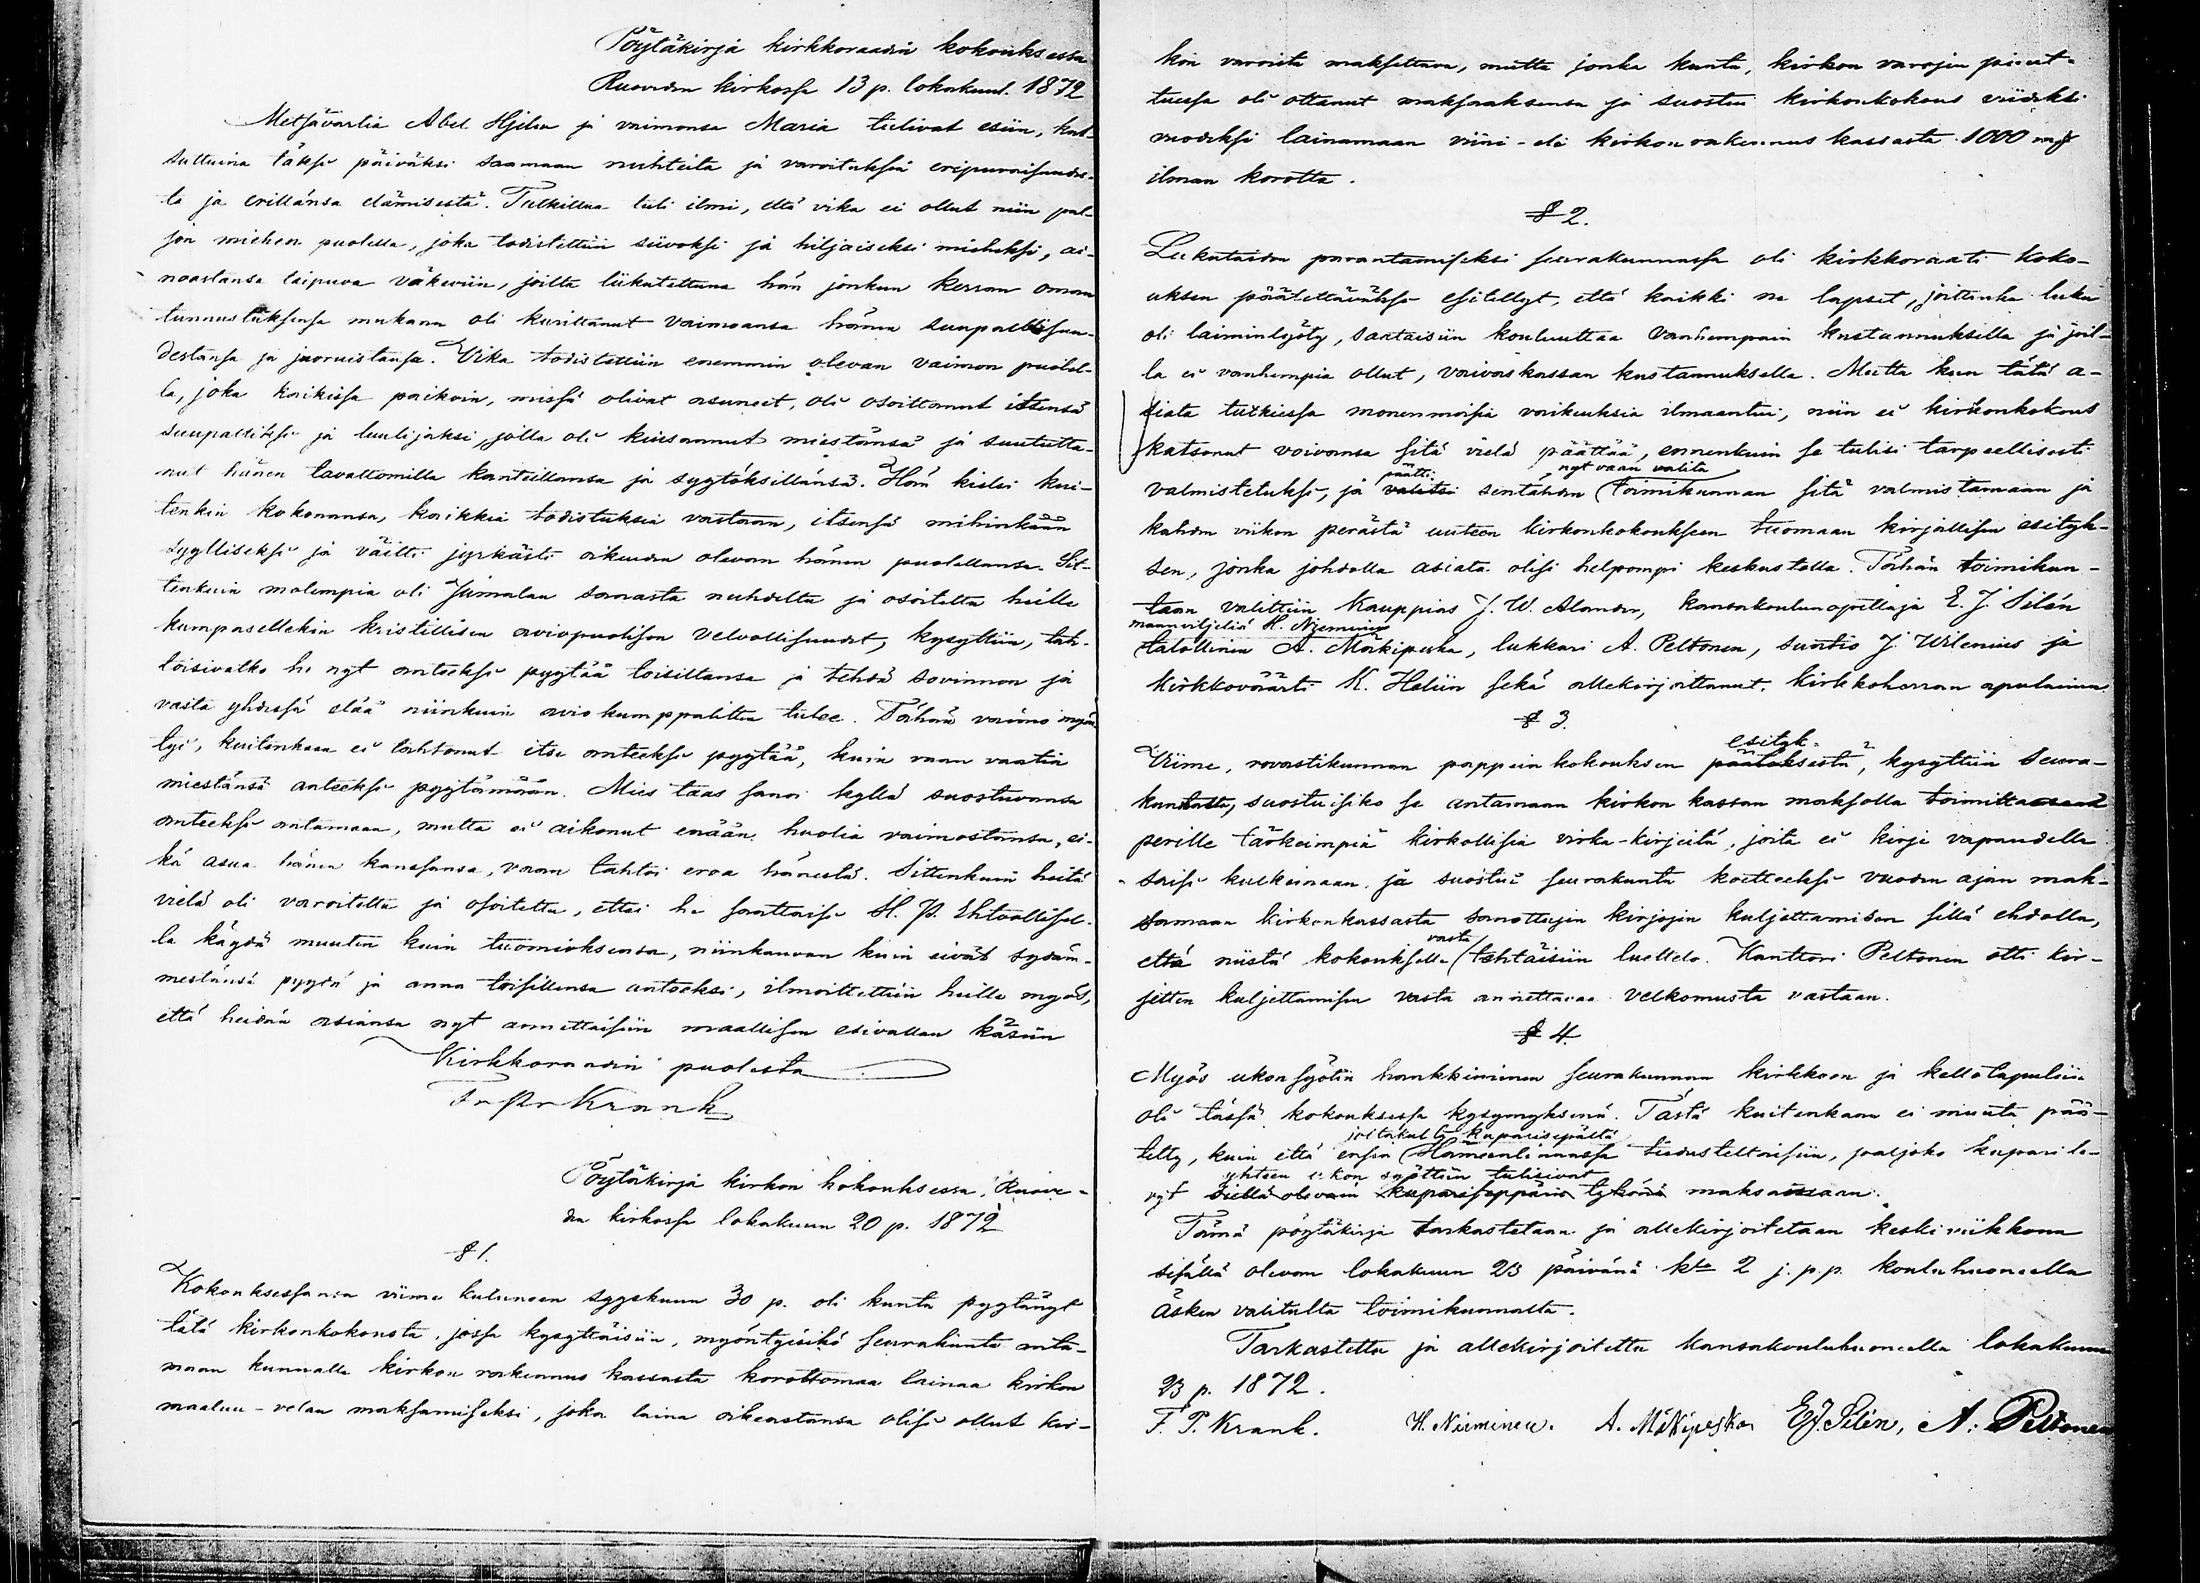 Pöytäkirja kirkkoraadin kokouksessa
Ruoveden kirkossa 13 p. lokakuut. 1872
Metsävartia Abel Hjelm ja vaimonsa Maria tulivat esiin, kut-
suttuina täksi päiväksi saamaan nuhteita ja varoituksia eripuraisuudes-
ta ja erillänsä elämisestä. Tutkittua tuli ilmi, että vika ei ollut niin pal-
jon miehen puolella, joka todistettiin siivoksi ja hiljaiseksi mieheksi, ai-
noastansa taipuva väkeviin, joilta liikutettuna hän jonkun kerran oman
tunnustuksensa mukaan oli kurittanut vaimoansa hänen suupaltisuu-
destansa ja juoruistansa. Vika todistettiin enemmin olevan vaimon puolel-
la, joka kaikissa paikoin, missä olivat asuneet, oli osoittanut itsensä
suupaltiksi ja luulijaksi, jolla oli kiusannut miestänsä ja suututta-
nut hänen tavattomilla kanteillansa ja syytöksillänsä. Hän kielsi kui-
tenkin kokonansa, kaikkia todistuksia vastaan, itsensä mihinkään
sylliseksi ja väitti jyrkästi oikeuden olevan hänen puolellansa. Sit-
tenkuin molempia oli Jumalan sanasta nuhdeltu ja osoitettu heille
kumpasellekin kristillisen aviopuolison velvollisuudet, kysyttiin, tah-
toisivatko he nyt anteeksi pyytää toisiltansa ja tehdä sovinnon ja
vasta yhdessä elää niinkuin aviokumppalitten tulee. Tähän vaimo myön
tyi, kuitenkaan ei tahtonut itse anteeksi pyytää, kuin vaan vaatia
miestänsä anteeksi pyytämään. Mies taas sanoi kyllä suostuvansa
anteeksi antamaan, mutta ei aikonut enään huolia vaimostansa, ei-
kä asua hänen kanssansa, vaan tahtoi eroa hänestä. Sittenkuin heitä
vielä oli varoitettu ja osoitettu, ettei he saattaisi H. P. Ehtoollisel-
la käydä muuten kuin tuomioksensa, niinkauvan kuin eivät sydäm-
mestänsä pyydä ja anna toisillensa anteeksi, ilmoitettiin heille myös,
että heidän asiansa nyt annettaisiin maallisen esivallan käsiin
Kirkkoraadin puolesta
Fr Pr Krank
Pöytäkirja kirkon kokouksessa, Ruove-
den kirkossa lokakuun 20 p. 1872
§ 1.
Kokouksessansa viime kuluneen syyskuun 30 p. oli kunta pyytänyt
tätä kirkonkokousta, jossa kysyttäisiin, myöntyisikö seurakunta anta-
maan kunnalle kirkon rakennus kassasta korottomaa lainaa kirkon
maaluu-velan maksamiseksi, joka laina oikeastansa olisi ollut kir-
kon varoista maksettava, mutta jonka kunta, kirkon varojen puut-
tuessa oli ottanut maksaaksensa ja suostui kirkonkokous viideksi
vuodeksi lainamaan viini- eli kirkon rakennus kassasta 1000 mk
ilman korotta.
§ 2.
Lukutaidon parantamiseksi seurakunnassa oli kirkkoraati koko-
uksen päätettäväksi esitellyt, että kaikki ne lapset, joittenka luku
oli laiminlyöty, saataisiin kouluuttaa vanhempain kustannuksella ja joil-
la ei vanhempia ollut, vaivaskassan kustannuksella. Mutta kun tätä a-
siata tutkiessa monenmoisia vaikeuksia ilmaantui, niin ei kirkonkokous
katsonut voivansa sitä vielä päättää, ennenkuin se tulisi tarpeellisesti
päätti nyt vaan valita
valmistetuksi, ja valitsi sentähden toimikunnan sitä valmistamaan ja
kahden viikon perästä uuteen kirkonkokoukseen tuomaan kirjallisen esityk-
sen, jonka johdolla asiata olisi helpompi keskustella. Tähän toimikun-
taan valittiin Kauppias J. W. Alander, kansakoulunopettaja E. J. Silén
maanviljeliä H. Nieminen
talollinen A. Mäkipeska, lukkari A. Peltonen, suntio J. Wilenius ja
kirkkoväärti K. Helin sekä allekirjoittanut, kirkkoherran apulainen.
§ 3.
esityk-
Viime, rovastikunnan pappein kokouksen päätöksestä, kysyttiin seura-
kunnalta, suostuisiko se antamaan kirkon kassan maksolla toimittaa
perille tärkeimpiä kirkollisia virka-kirjeitä, joita ei kirje vapaudella
saisi kulkemaan, ja suostui seurakunta koitteeksi vuoden ajan mak-
samaan kirkonkassasta sanottujen kirjojen kuljettamisen sillä ehdolla,
vasta
että niistä kokoukselle tehtäisiin luettelo. Kanttori Peltonen otti kir-
jetten kuljettamisen vasta annettavaa velkomusta vastaan.
§ 4.
Myös ukonsyötin hankkiminen seurakunnan kirkkoon ja kellotapuliin
oli tässä kokouksessa kysymyksenä. Tästä kuitenkaan ei muuta pää-
joltakulta kuparisepältä
tetty, kuin että ensin Hämeenlinnassa tiedusteltaisiin, paljoko kupari le-
yhteen ukon syöttiin tulisivat
vyt siellä olevain kupariseppäin tykönä maksamaan.
Tämä pöytäkirja tarkastetaan ja allekirjoitetaan keskiviikkona
sisällä olevan lokakuun 23 päivänä klo 2 j. p. p. kouluhuoneella
äsken valitulta toimikunnalta.
Tarkastettu ja allekirjoitettu kansakouluhuoneella lokakuun
23 p. 1872.
F. P. Krank. H. Nieminen. A. Mäkipeska EJ. Silén, A. Peltonen